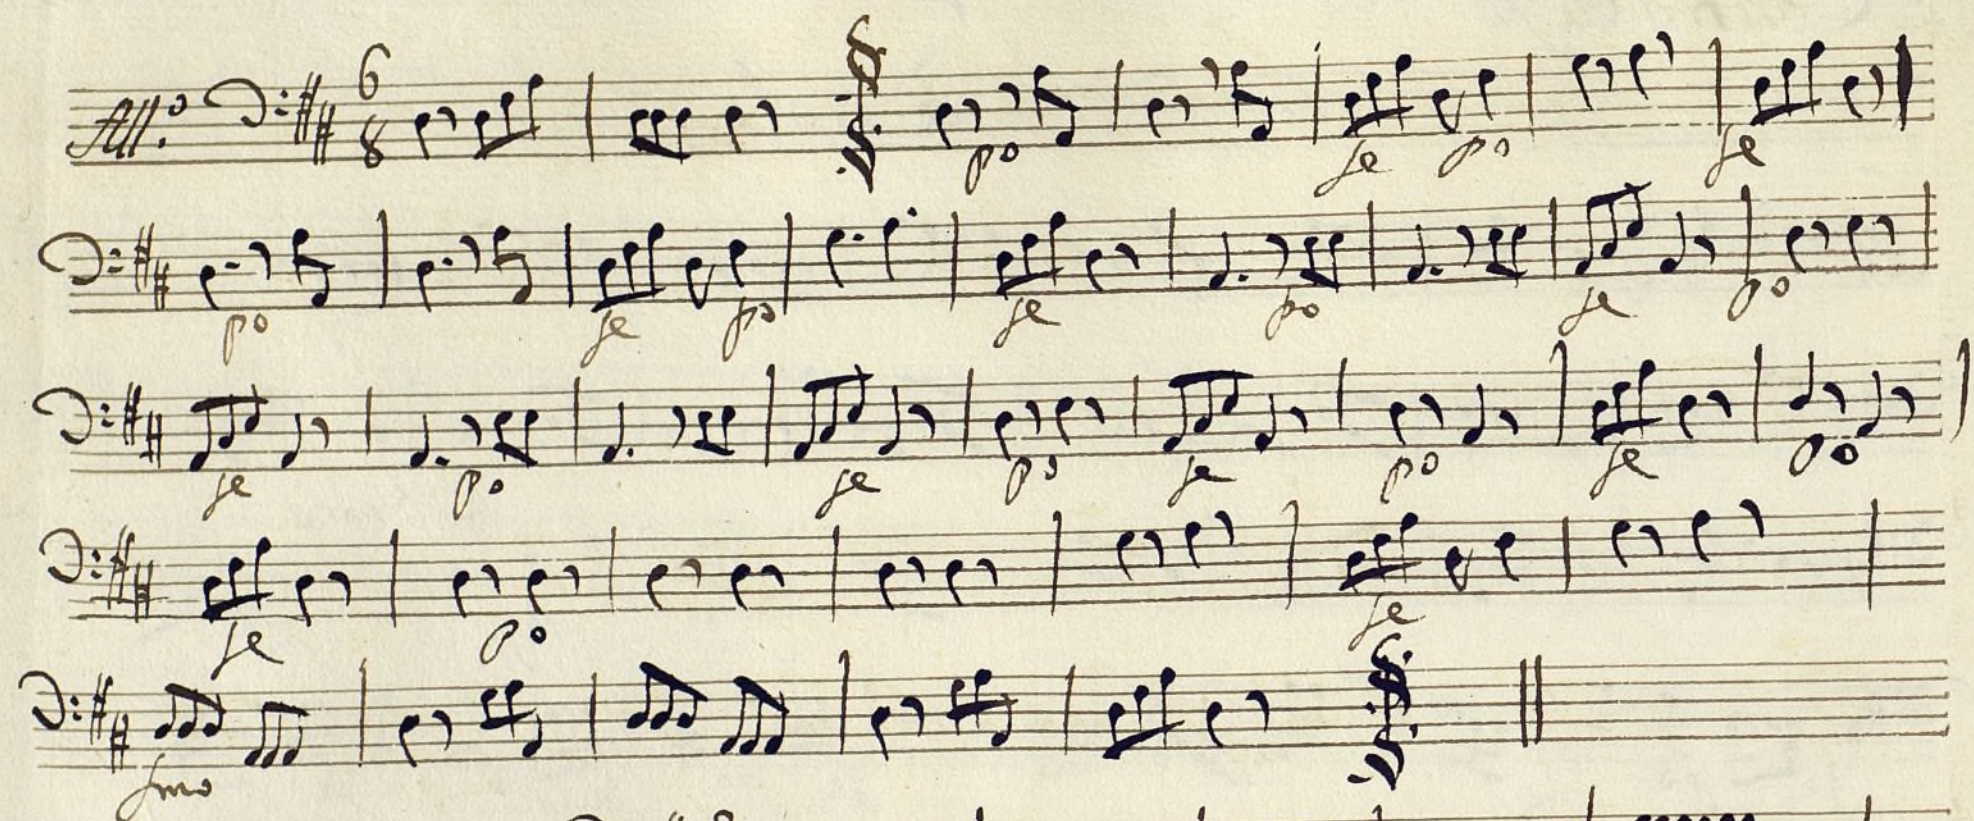 All.º 6 8
po fe po fe
po fe po fe po fe po
fe po fe po fe po fe po
fe po fe
fmo